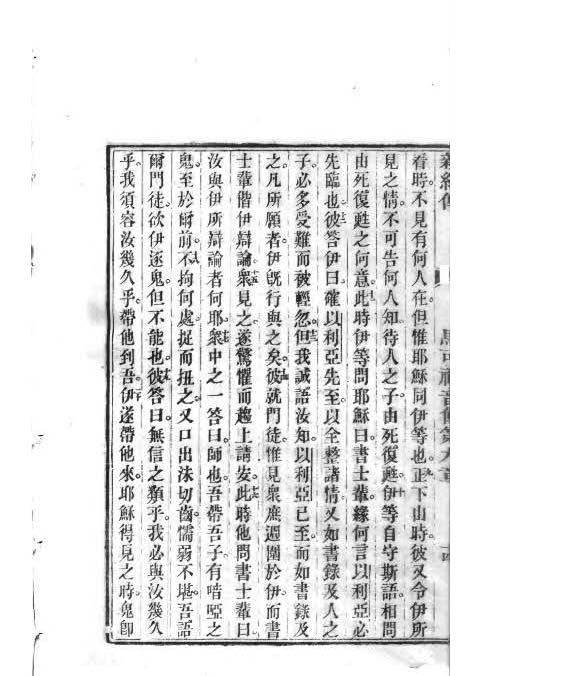 新約傳 馬可福音傳第九章
看時。不見有何人在。但惟耶穌同伊等也。九正下山時。彼又令伊所
見之情。不可告何人知。待人之子由死復甦。十伊等自守斯語。相問
由死復甦之何意。十一此時伊等問耶穌曰。書士輩緣何言以利亞必
先臨也。十二彼答伊曰。確以利亞先至。以全整諸情。又如書錄及人之
子。必多受難而被輕忽。十三但我誠語汝知。以利亞已至。而如書錄及
之。凡所願者。伊旣行與之矣。十四彼就門徒。惟見衆庶週圍於伊。而書
士輩偕伊辯論。十五衆見之。遂驚懼而趨上請安。十六此時他問書士輩曰。
汝與伊所辯論者何耶。十七衆中之一答曰。師也。吾帶吾子有啞之
鬼至於爾前。十八不拘何處捉而扭之。又口出沫切齒懦弱不堪。吾語
爾門徒欲伊逐鬼。但不能也。十九彼答曰。無信之類乎。我必與汝幾久
乎。我須容汝幾久乎。帶他到吾。二十伊遂帶他來。耶穌得見之時。鬼卽